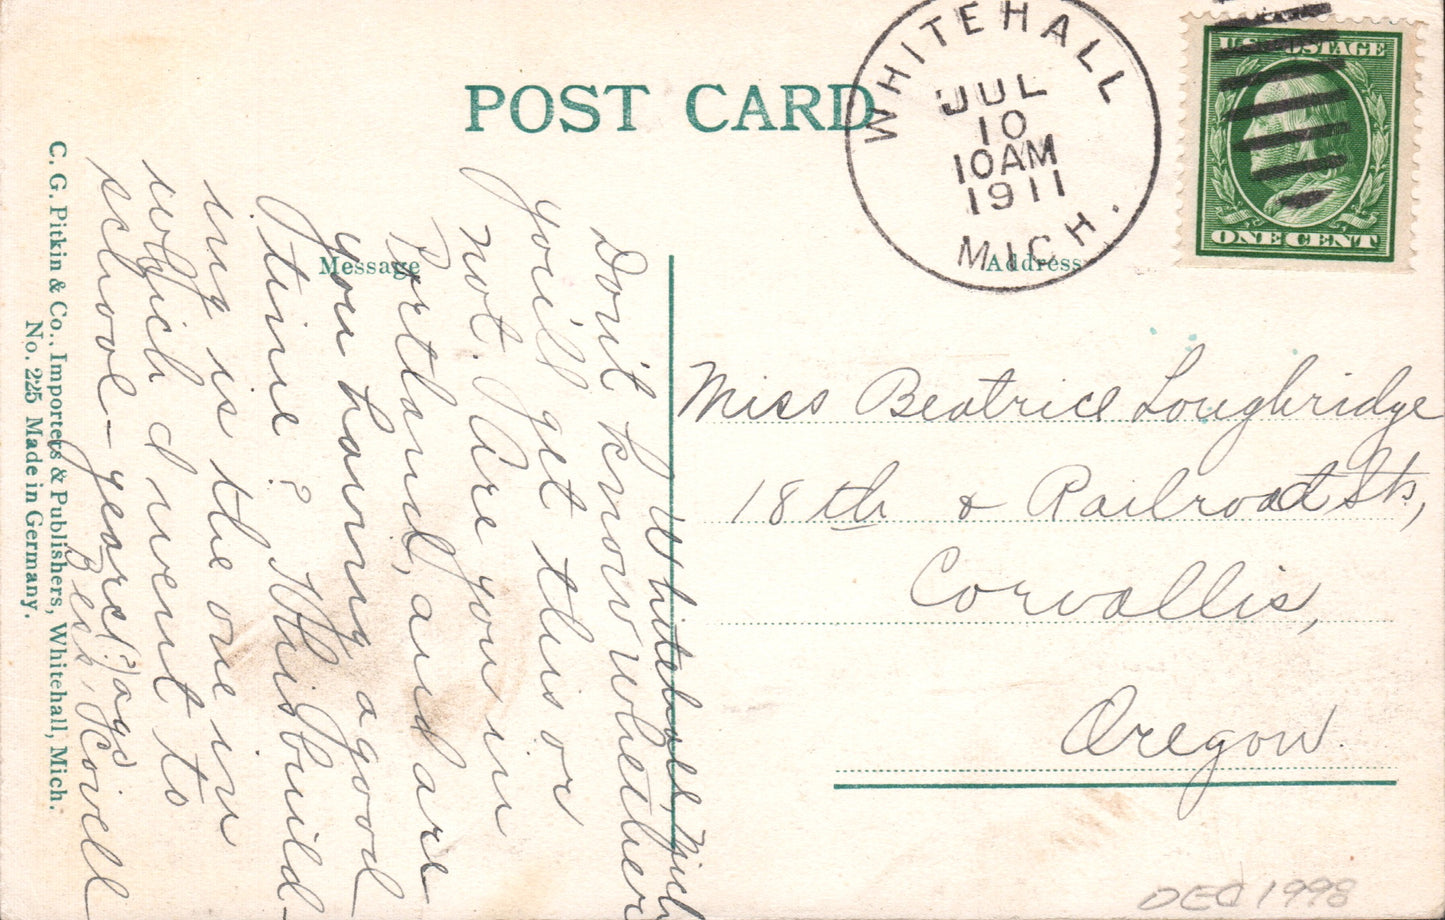 POST CARD
WHITEHALL
JUL
10
10AM
1911
MICH.
U.S. POSTAGE
ONE CENT
Message
Address
Miss Beatrice Loughridge
18th & Railroad Sts,
Corvallis,
Oregon.
Whitehall, Mich
Don't know whether
you'll get this or
not. Are you in
Portland, and are
you having a good
time? This build-
ing is the one in
which I went to
school - years (?) ago
Bess Howell
C. G. Pitkin & Co., Importers & Publishers, Whitehall, Mich.
No. 225 Made in Germany.
DEC 1998